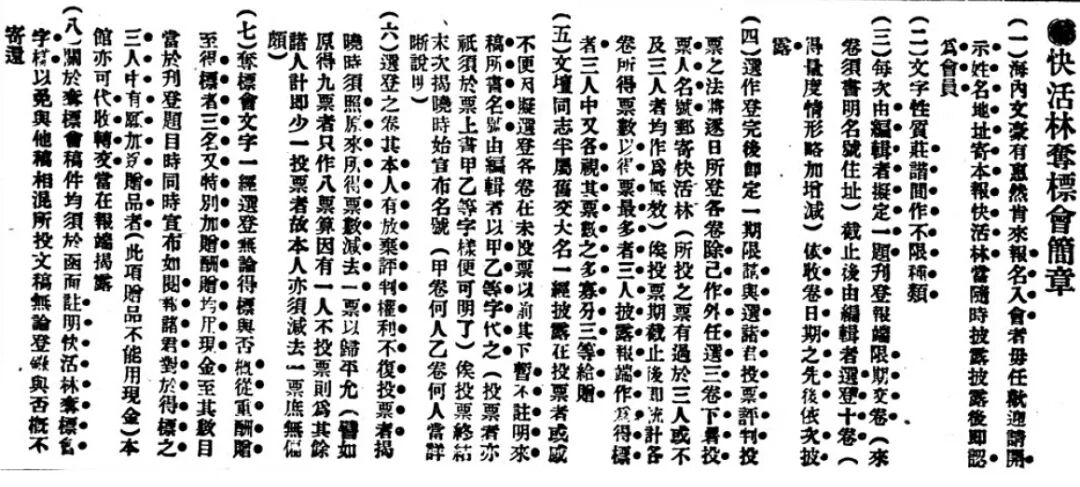 快活林奪標會簡章
(一)海內文豪有惠然肯來報名入會者毋任歡迎請開
示姓名地址寄本報快活林當隨時披露披露後即認
爲會員
(二)文字性質莊諧間作不限種類
(三)每次由編輯者擬定一題刊登報端限期交卷(來
卷須書明名號住址)截止後由編輯者選登十卷(
得量度情形略加增減)依收卷日期之先後依次披
露
(四)選作登完後卽定一期限請與選諸君投票評判投
票之法將逐日所登各卷除己作外任選三卷下署投
票人名號郵寄快活林(所投之票有過於三人或不
及三人者均作爲無效)俟投票期截止後卽統計各
卷所得票數以得票最多者三人披露報端作爲得標
者三人中又各視其票數之多寡分三等給贈
(五)文壇同志半屬舊交大名一經披露在投票者或感
不便因擬選登各卷在未投票以前其下暫不註明來
稿所書名號由編輯者以甲乙等字代之(投票者亦
祇須於票上書甲乙等字樣便可明了)俟投票終結
末次揭曉時始宣布名號(甲卷何人乙卷何人當詳
晰說明)
(六)選登之卷其本人有放棄評判權利不復投票者揭
曉時須照原來所得票數減去一票以歸平允(譬如
原得九票者只作八票算因有一人不投票則爲其餘
諸人計卽少一投票者故本人亦須減去一票庶無偏
頗)
(七)奪標會文字一經選登無論得標與否概從重酬贈
至得標者三名又特別加贈酬贈均用現金至其數目
當於刊登題目時同時宣布如閱報諸君對於得標之
三人中有願加送贈品者(此項贈品不能用現金)本
館亦可代收轉交當在報端揭露
(八)關於奪標會稿件均須於函面註明快活林奪標會
字樣以免與他稿相混所投文稿無論登載與否概不
寄還